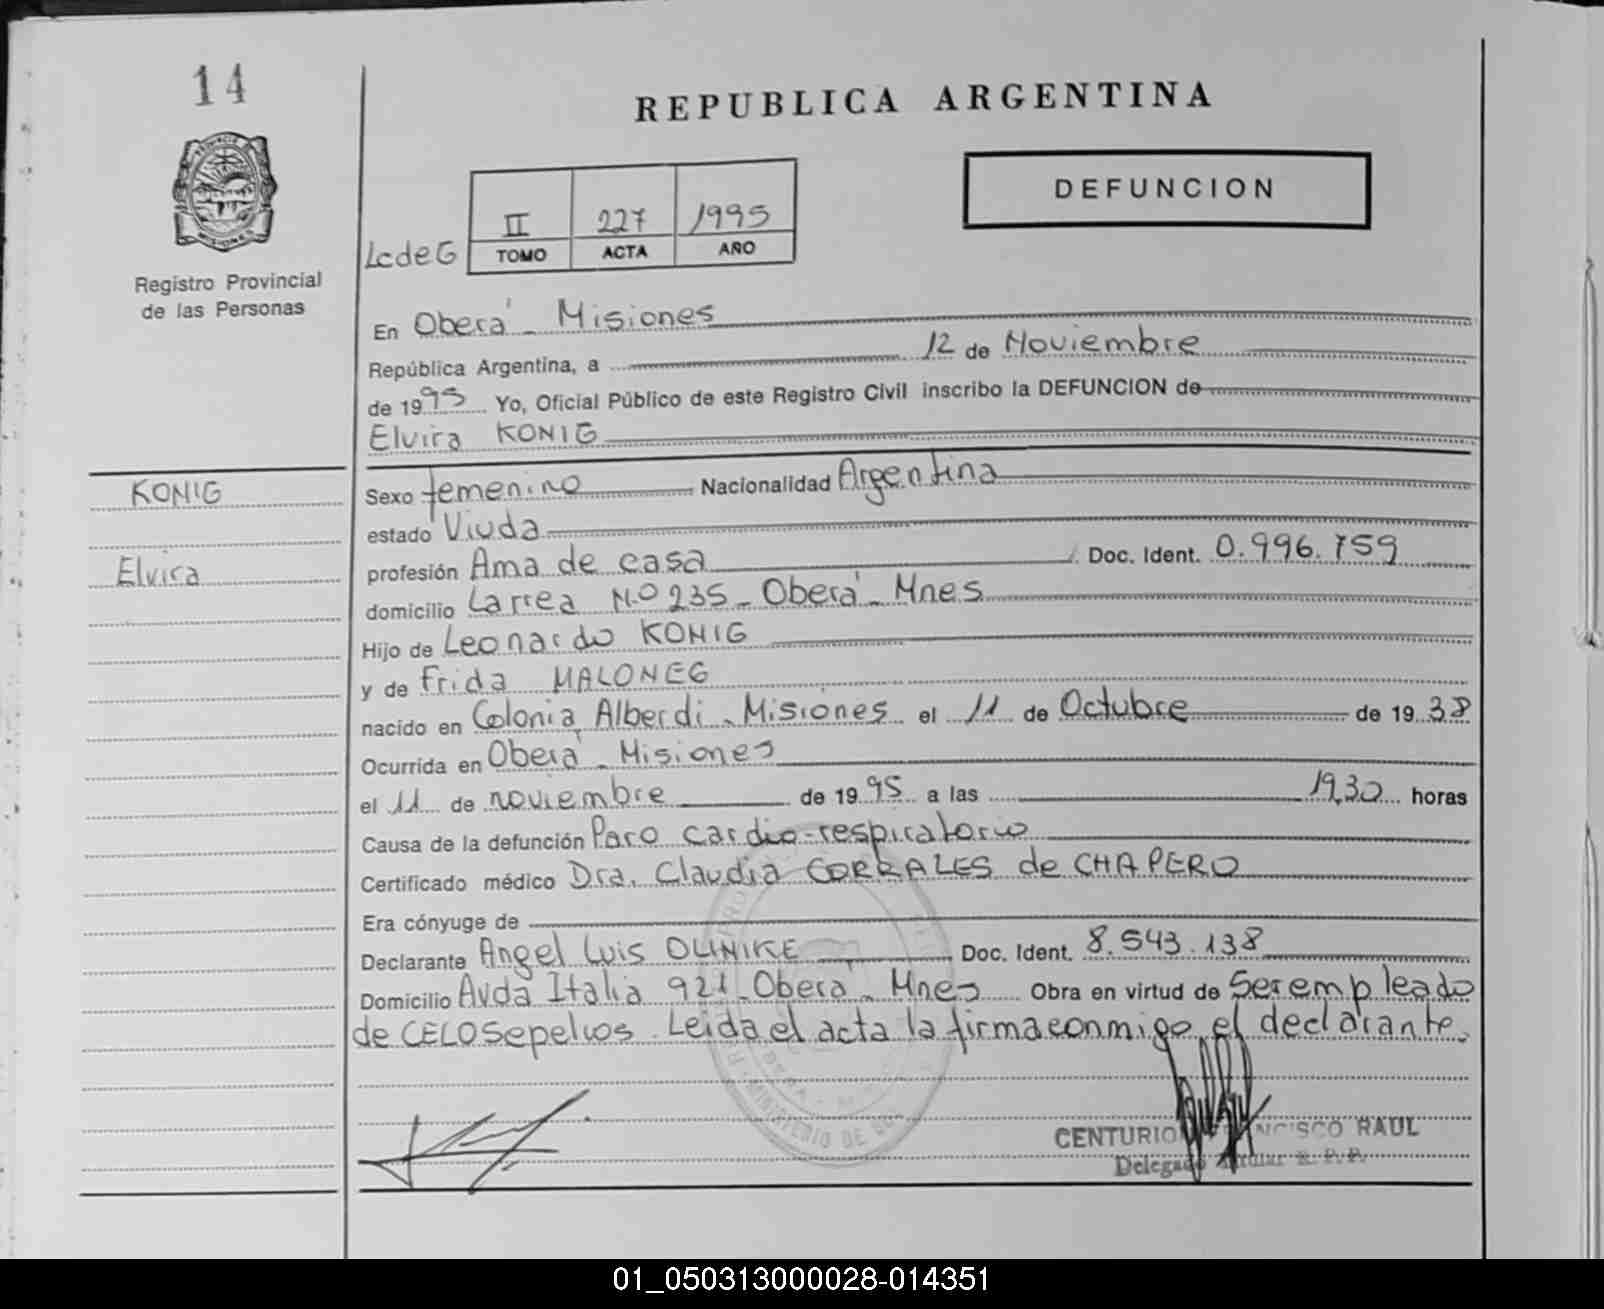 14
REPUBLICA ARGENTINA
DEFUNCION
LcdeG
II 227 1995
TOMO ACTA AÑO
PROVINCIA DE
MISIONES
Registro Provincial
de las Personas
En Oberá - Misiones
República Argentina, a 12 de Noviembre
de 1995 Yo, Oficial Público de este Registro Civil inscribo la DEFUNCION de
Elvira KONIG
KONIG
Elvira
Sexo femenino Nacionalidad Argentina
estado Viuda
profesión Ama de casa Doc. Ident. 0.996.759
domicilio Larrea N.º 235 - Oberá - Mnes
Hijo de Leonardo KONIG
y de Frida MALONEG
nacido en Colonia Alberdi - Misiones el 11 de Octubre de 1938
Ocurrida en Oberá - Misiones
el 11 de noviembre de 1995 a las 19,30 horas
Causa de la defunción Paro cardio-respiratorio
Certificado médico Dra. Claudia CORRALES de CHAPERO
Era cónyuge de
Declarante Angel Luis OLINIKE Doc. Ident. 8.543.138
Domicilio Avda Italia 921 - Oberá - Mnes Obra en virtud de Ser empleado
de CELO Sepelios. Leida el acta la firma conmigo el declarante.
MINISTERIO DE
CENTURION FRANCISCO RAUL
Delegado Titular R. P. P.
01_050313000028-014351